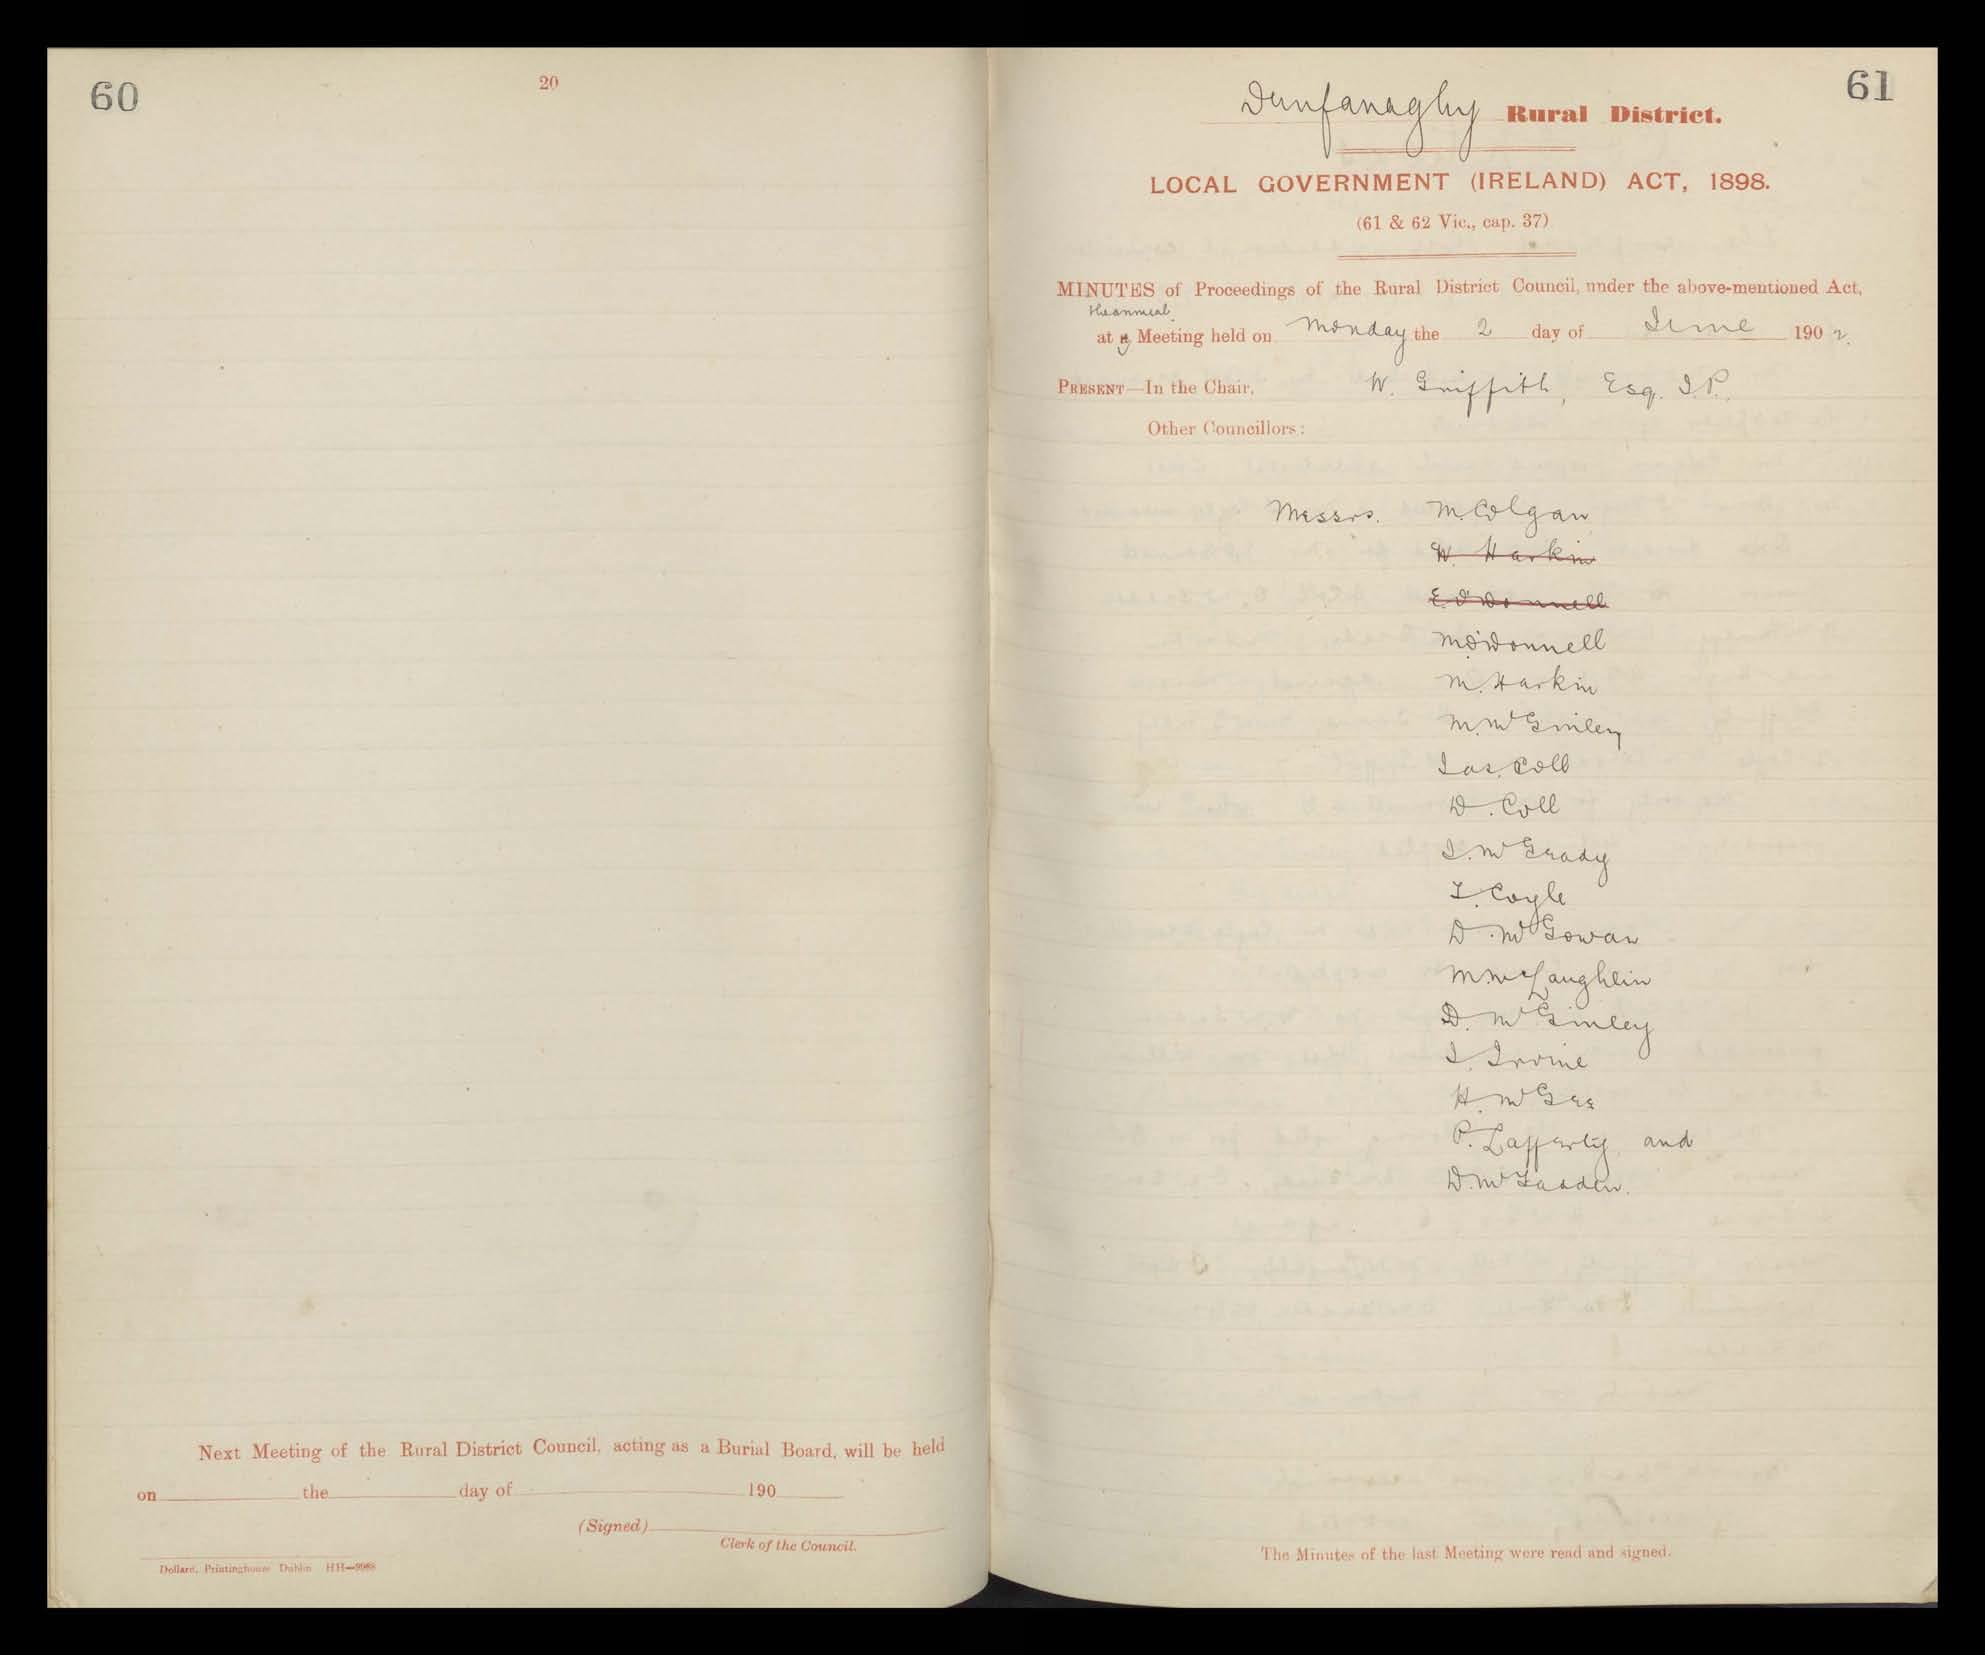 60
20
Next Meeting of the Rural District Council, acting as a Burial Board, will be held
on the day of 190
(Signed)
Clerk of the Council.
Dollard, Printinghouse Dublin HH—9988
61
Dunfanaghy Rural District.
LOCAL GOVERNMENT (IRELAND) ACT, 1898.
(61 & 62 Vic., cap. 37)
MINUTES of Proceedings of the Rural District Council, under the above-mentioned Act,
the annual
at a Meeting held on Monday the 2 day of June 1902.
PRESENT—In the Chair, W. Griffith, Esq. J.P.
Other Councillors:
Messrs. M. Colgan
W. Harkin
E. O'Donnell
M O'Donnell
M. Harkin
M. McGinley
Jas. Coll
D. Coll
J. McGeady
F. Coyle
D. McGowan
M. McLaughlin
D. McGinley
J. Irvine
H. McGee
P. Lafferty and
D. McFadden.
The Minutes of the last Meeting were read and signed.